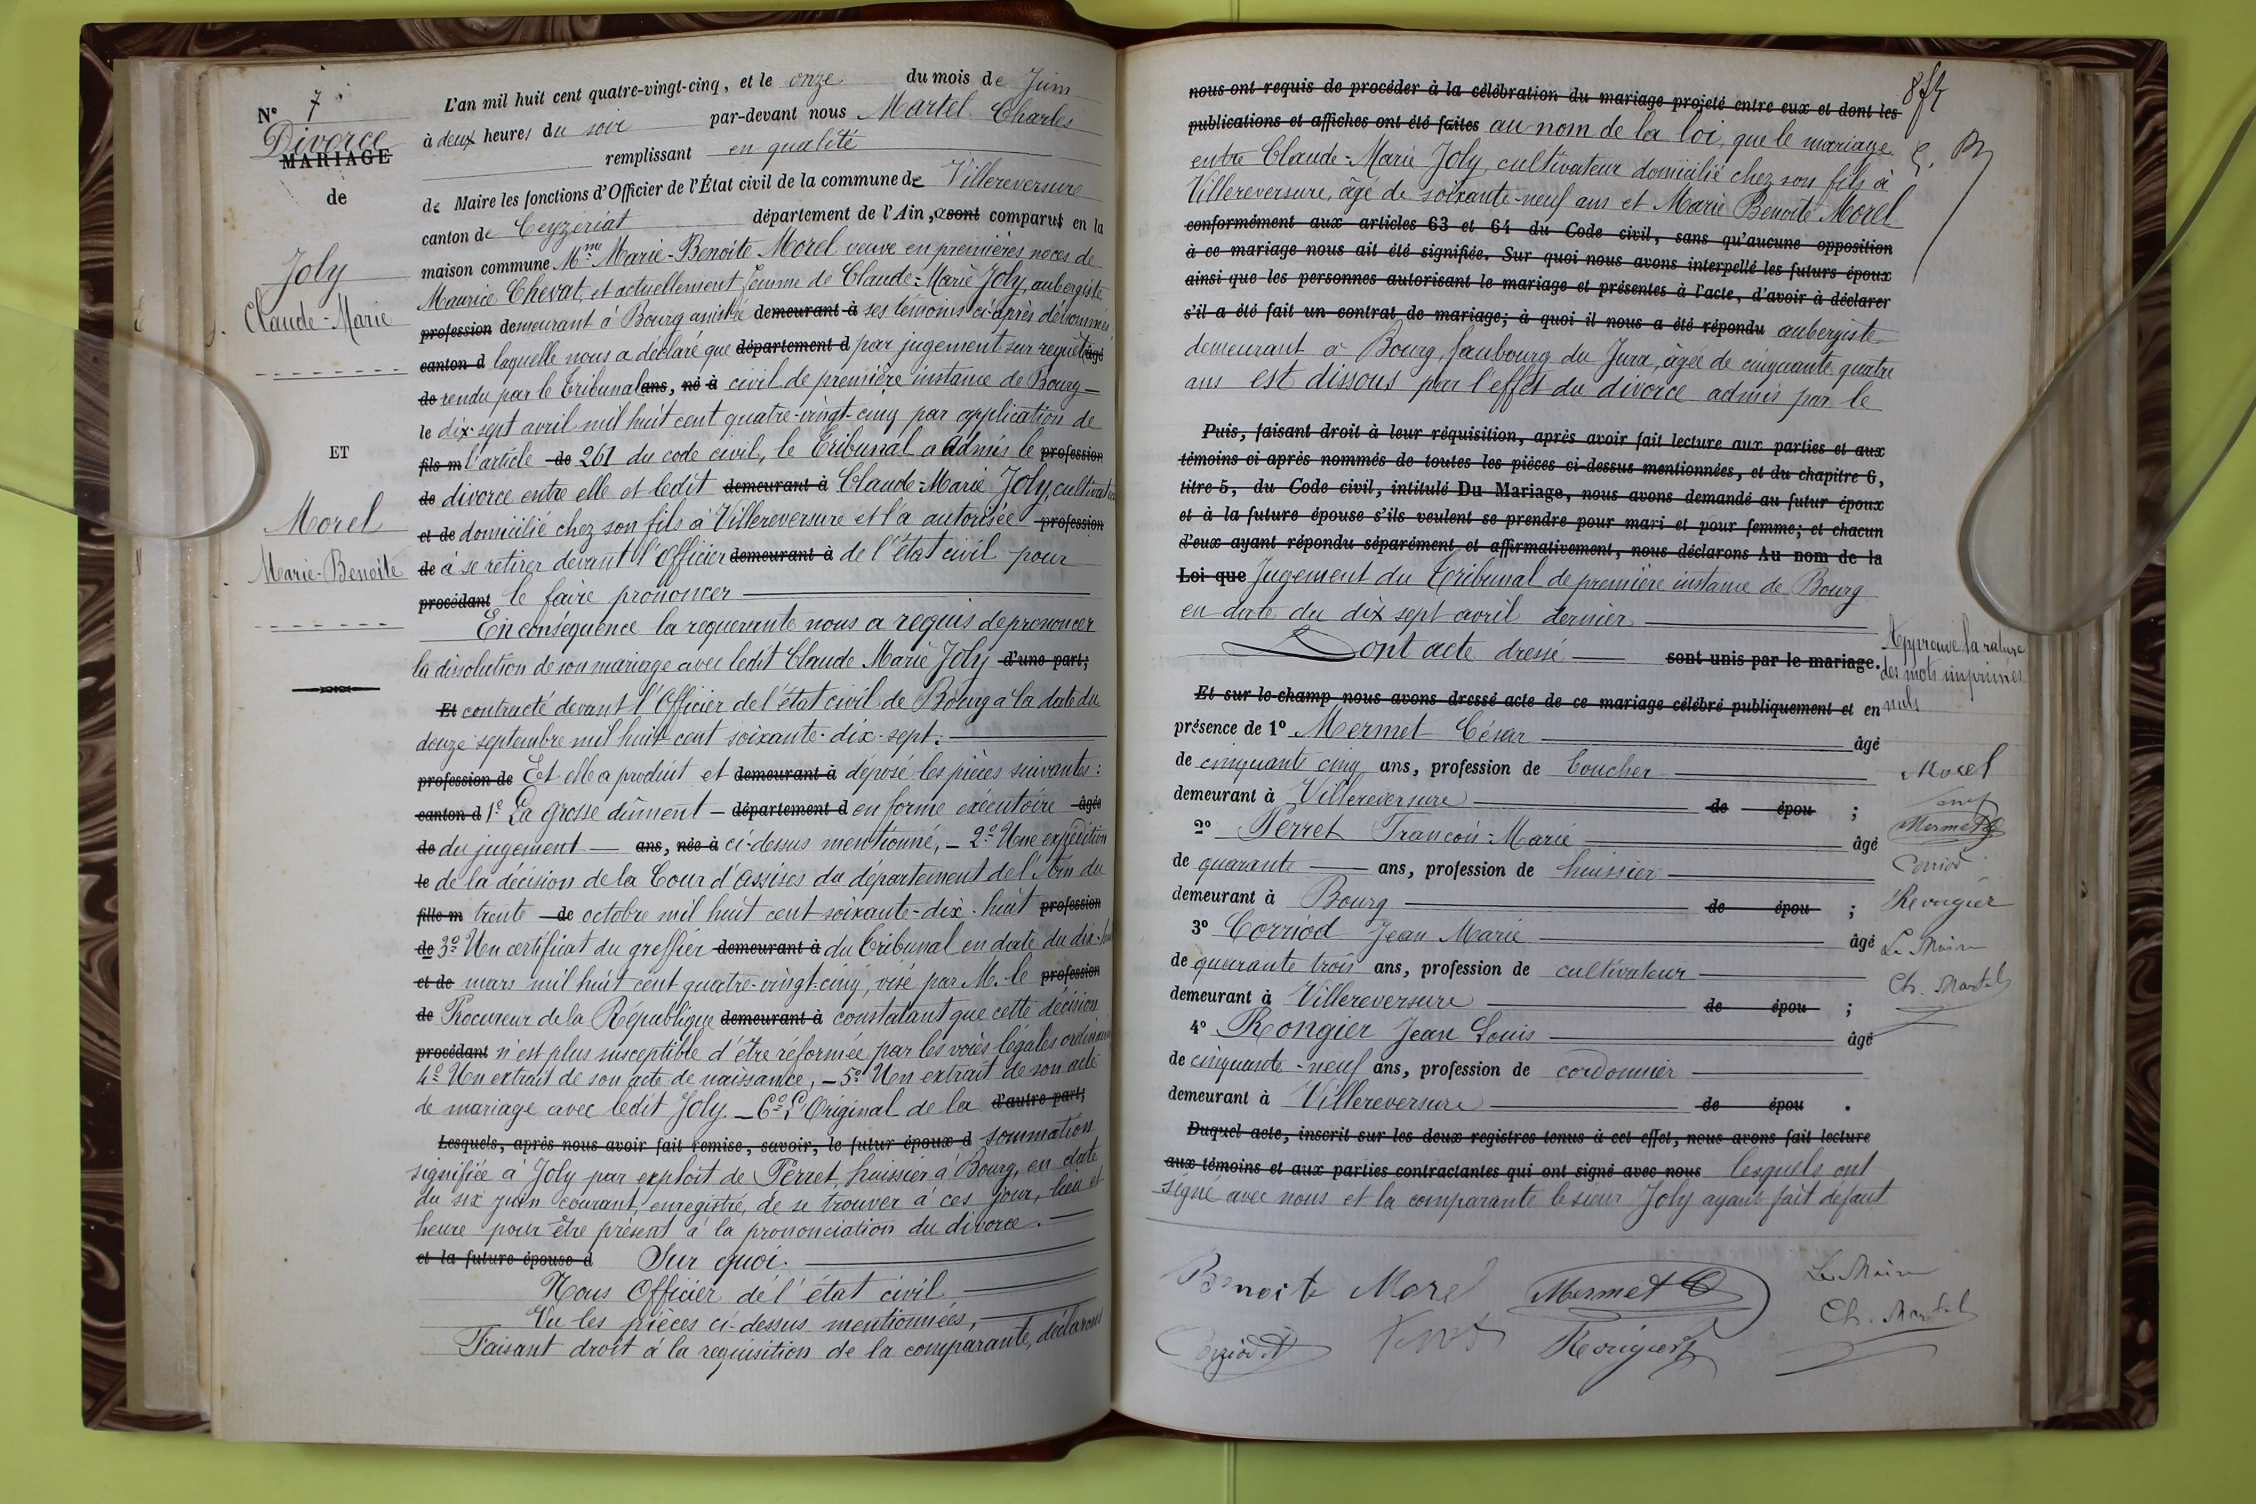 N° 7
Divorce
MARIAGE
de
Joly
Claude-Marie
ET
Morel
Marie-Benoite
L'an mil huit cent quatre-vingt-cinq, et le onze du mois de Juin
à deux heures du soir par-devant nous Martel Charles
remplissant en qualité
de Maire les fonctions d'Officier de l'État civil de la commune de Villereversure
canton de Ceyzériat département de l'Ain, a sont comparus en la
maison commune Mme Marie-Benoite Morel veuve en premières noces de
Maurice Chevat, et actuellement femme de Claude-Marie Joly, aubergiste
profession demeurant à Bourg assistée demeurant à ses témoins ci-après dénommés
canton d laquelle nous a déclaré que département d par jugement sur requête âgé
de rendu par le Tribunal ans, né à civil de première instance de Bourg
le dix-sept avril mil huit cent quatre-vingt-cinq par application de
fils m l'article de 261 du code civil, le Tribunal a admis le profession
de divorce entre elle et ledit demeurant à Claude-Marie Joly, cultivateur
et de domicilié chez son fils à Villereversure et l'a autorisée profession
de à se retirer devant l'Officier demeurant à de l'état civil pour
procédant le faire prononcer
En conséquence la requerante nous a requis de prononcer
la dissolution de son mariage avec ledit Claude Marie Joly d'une part;
Et contracté devant l'Officier de l'état civil de Bourg à la date du
douze septembre mil huit cent soixante-dix-sept.
profession de Et elle a produit et demeurant à déposé les pièces suivantes:
canton d 1° La grosse dûment département d en forme exécutoire âgée
de du jugement ans, née à ci-dessus mentionné, - 2° Une expédition
le de la décision de la Cour d'assises du département de l'Ain du
fille m trente de octobre mil huit cent soixante-dix-huit profession
de 3° Un certificat du greffier demeurant à du Tribunal en date du dix-huit
et de mars mil huit cent quatre-vingt-cinq, visé par M. le profession
de Procureur de la République demeurant à constatant que cette décision
procédant n'est plus susceptible d'être réformée par les voies légales ordinaires
4° Un extrait de son acte de naissance, - 5° Un extrait de son acte
de mariage avec ledit Joly. - 6° L'Original de la d'autre part;
Lesquels, après nous avoir fait remise, savoir, le futur époux d sommation
signifiée à Joly par exploit de Perret, huissier à Bourg, en date
du six juin courant, enregistré, de se trouver à ces jour, lieu et
heure pour être présent à la prononciation du divorce.
et la future épouse d Sur quoi.
Nous Officier de l'état civil
Vu les pièces ci-dessus mentionnées,
Faisant droit à la requisition de la comparante, déclarons
nous ont requis de procéder à la célébration du mariage projeté entre eux et dont les
publications et affiches ont été faites au nom de la loi, que le mariage
entre Claude-Marie Joly, cultivateur domicilié chez son fils à
Villereversure, âgé de soixante-neuf ans et Marie Benoite Morel
conformément aux articles 63 et 64 du Code civil, sans qu'aucune opposition
à ce mariage nous ait été signifiée. Sur quoi nous avons interpellé les futurs époux
ainsi que les personnes autorisant le mariage et présentes à l'acte, d'avoir à déclarer
s'il a été fait un contrat de mariage; à quoi il nous a été répondu aubergiste
demeurant à Bourg, faubourg du Jura, âgée de cinquante quatre
ans est dissous par l'effet du divorce admis par le
Puis, faisant droit à leur réquisition, après avoir fait lecture aux parties et aux
témoins ci-après nommés de toutes les pièces ci-dessus mentionnées, et du chapitre 6,
titre 5, du Code civil, intitulé Du Mariage, nous avons demandé au futur époux
et à la future épouse s'ils veulent se prendre pour mari et pour femme; et chacun
d'eux ayant répondu séparément et affirmativement, nous déclarons Au nom de la
Loi que Jugement du Tribunal de première instance de Bourg
en date du dix sept avril dernier
Dont acte dressé sont unis par le mariage.
Et sur-le-champ nous avons dressé acte de ce mariage célébré publiquement et en
présence de 1° Mermet César âgé
de cinquante cinq ans, profession de boucher
demeurant à Villereversure de épou ;
2° Perret François-Marie âgé
de quarante ans, profession de huissier
demeurant à Bourg de épou ;
3° Corriod Jean Marie âgé
de quarante trois ans, profession de cultivateur
demeurant à Villereversure de épou ;
4° Rongier Jean Louis âgé
de cinquante-neuf ans, profession de cordonnier
demeurant à Villereversure de épou .
Duquel acte, inscrit sur les deux registres tenus à cet effet, nous avons fait lecture
aux témoins et aux parties contractantes qui ont signé avec nous lesquels ont
signé avec nous et la comparante le sieur Joly ayant fait défaut
Benoite Morel Mermet C Le Maire
Ch. Martel
Corriod Rongier
Approuvé la rature
des mots imprimés
nuls
Morel
Mermet
Corriod
Rongier
Le Maire
Ch. Martel